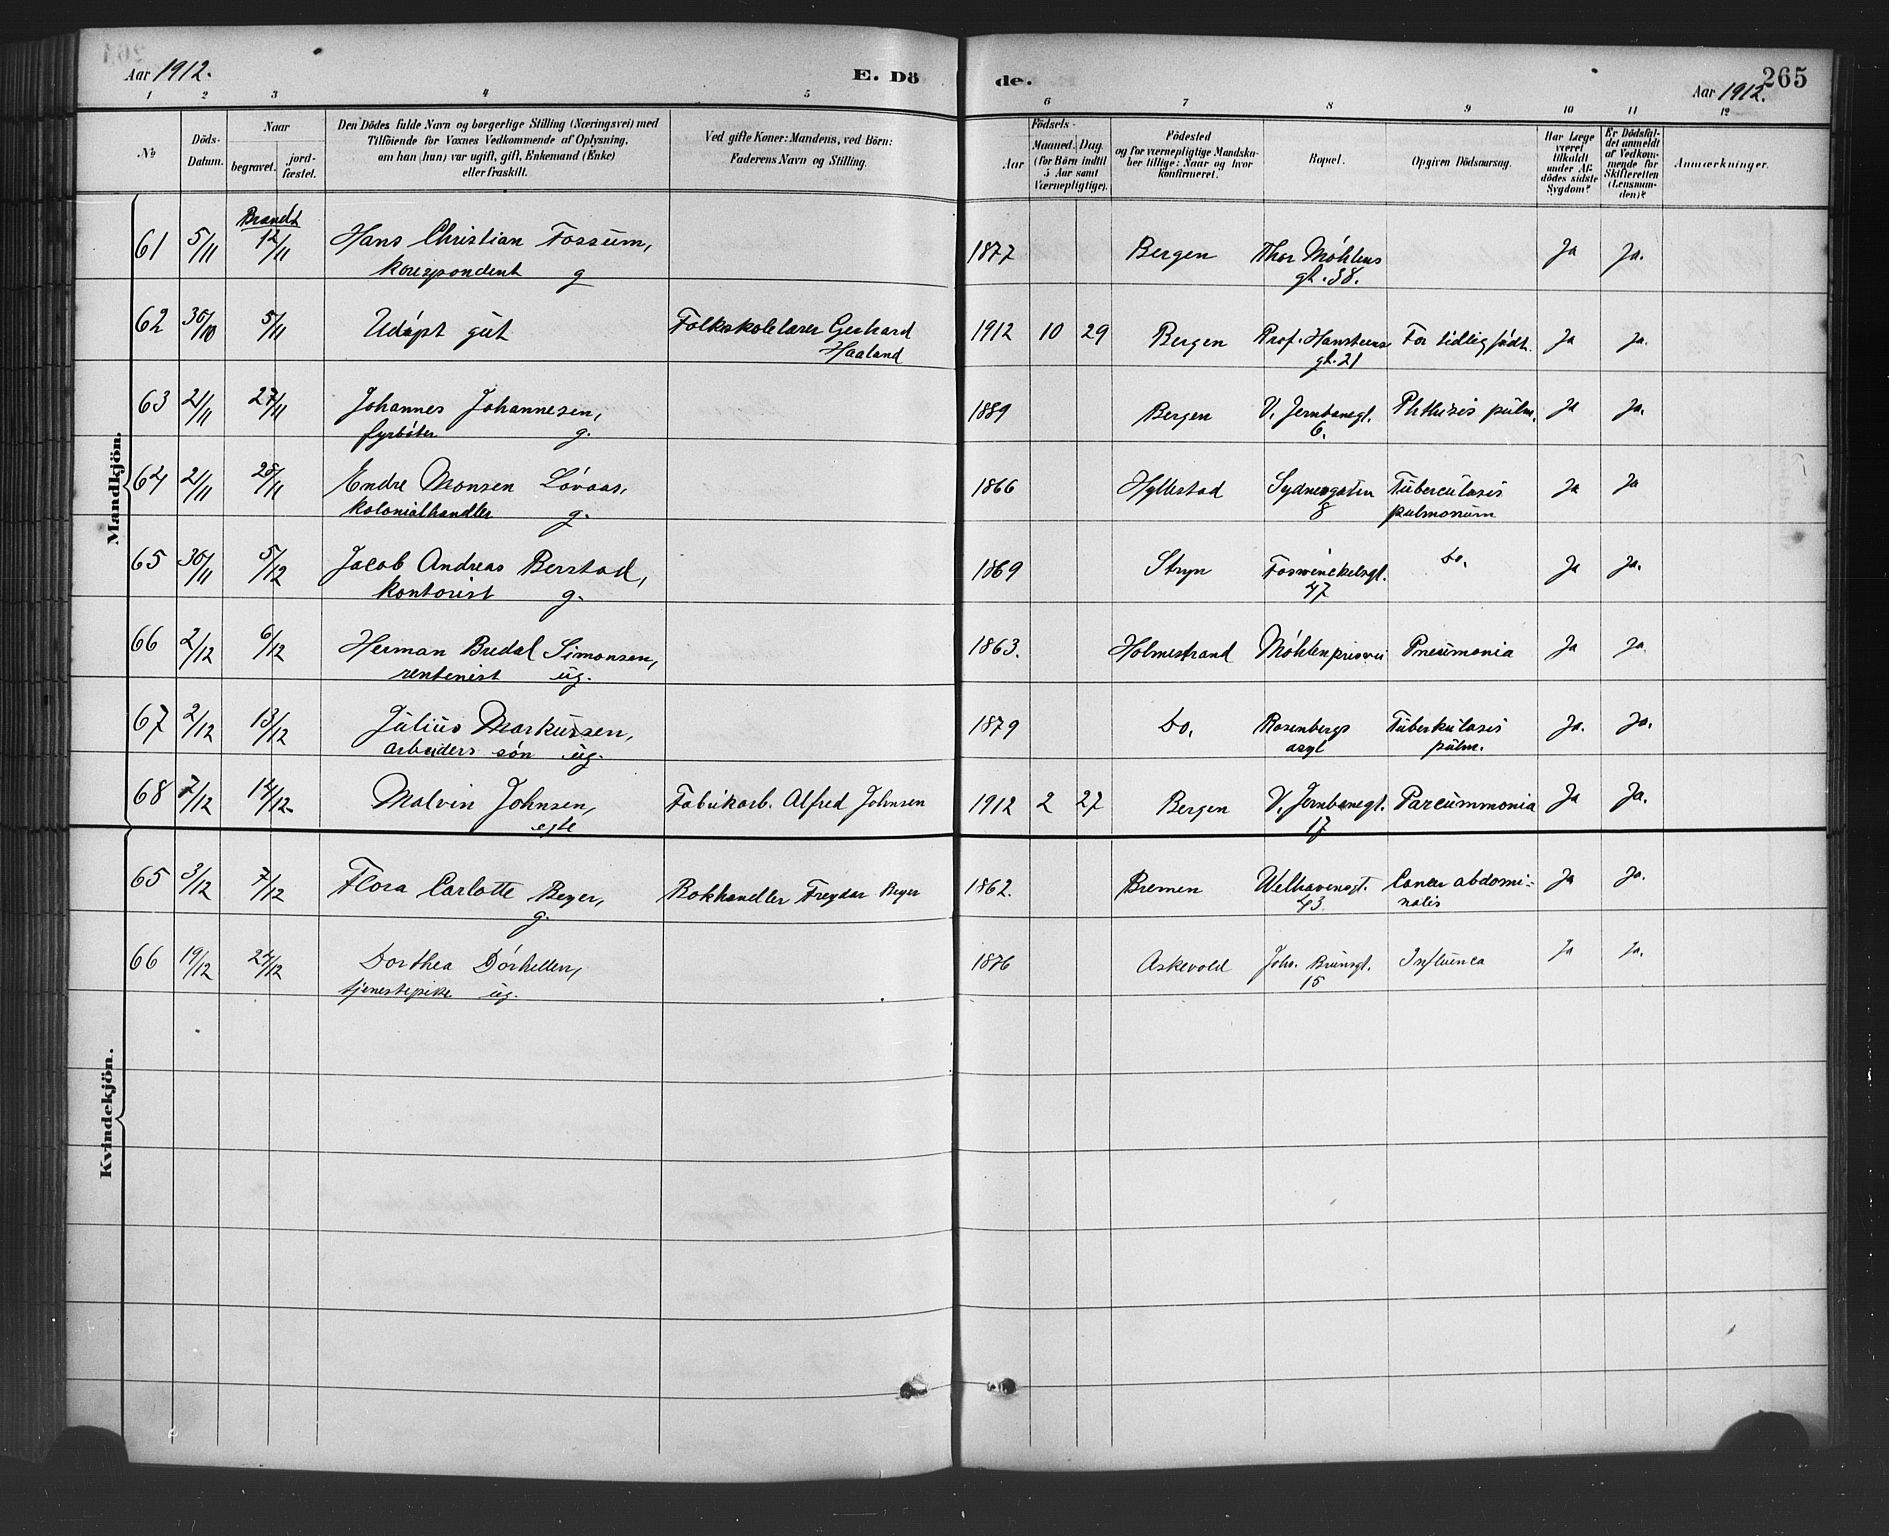 Aar 1912.
E. Dö
de.
265
Aar 1912.
1 2 3 4 5 6 7 8 9 10 11 12
No
Döds-Datum.
Naar
begravet.
jord-fæstet.
Den Dödes fulde Navn og borgerlige Stilling (Næringsvei) med
Tilföiende for Voxnes Vedkommende af Oplysning,
om han (hun) var ugift, gift, Enkemand (Enke)
eller fraskilt.
Ved gifte Koner: Mandens, ved Börn:
Faderens Navn og Stilling.
Födsels-
Aar
Maaned. Dag.
(for Börn indtil
5 Aar samt
Værnepligtige).
Födested
og for værnepligtige Mandskaber tillige: Naar og hvor
konfirmeret.
Bopæl.
Opgiven Dödsaarsag.
Har Læge
været
tilkaldt
under Afdödes sidste
Sygdom?
Er Dödsfaldet anmeldt
af Vedkommende for
Skifteretten
(Lensmanden)?
Anmærkninger.
Mandkjön.
Brandt
61 5/11 12/11 Hans Christian Fossum, 1877 Bergen Thor Møhlens Ja Ja.
korespondent g gt. 38.
62 30/10 5/11 Udøpt gut Folkskolelærer Gerhard 1912 10 29 Bergen Prof. Hansteens For tidlig født. Ja Ja.
Haaland gt. 21
63 21/11 27/11 Johannes Johannesen, 1889 Bergen V. Jernbanegt. Phthisis pulm. Ja Ja.
fyrbøter g. 6.
64 21/11 28/11 Endre Monsen Løvaas, 1866 Hyllestad Sydnesgaten Tuberculasis Ja Ja
kolonialhandler g. 8 pulmonum
65 30/11 5/12 Jacob Andreas Berstad, 1869 Stryn Foswinckelsgt. Do. Ja Ja.
kontorist g. 47
66 2/12 6/12 Herman Bredal Simonsen, 1863. Holmestrand Møhlenprisvei Pneumonia Ja Ja.
rentenist ug.
67 2/12 13/12 Julius Markussen, 1879 Do. Rosenbergs Tuberkulasis Ja. Ja.
arbeiders søn ug. asyl pulm.
68 7/12 14/12 Malvin Johnsen, Fabrikarb. Alfred Johnsen 1912 2 27 Bergen V. Jernbanegt. Parcummonia Ja Ja.
egte 17
Kvindekjön.
65 3/12 7/12 Flora Carlotte Beyer, Bokhandler Freydar Beyer 1862. Bremen Welhavensgt. Cancer abdomi- Ja Ja.
g. 43. nalis
66 19/12 24/12 Dorthea Dørhellen, 1876 Askevold Joh. Brunsgt. Influenca Ja Ja.
tjenestepike ug. 15